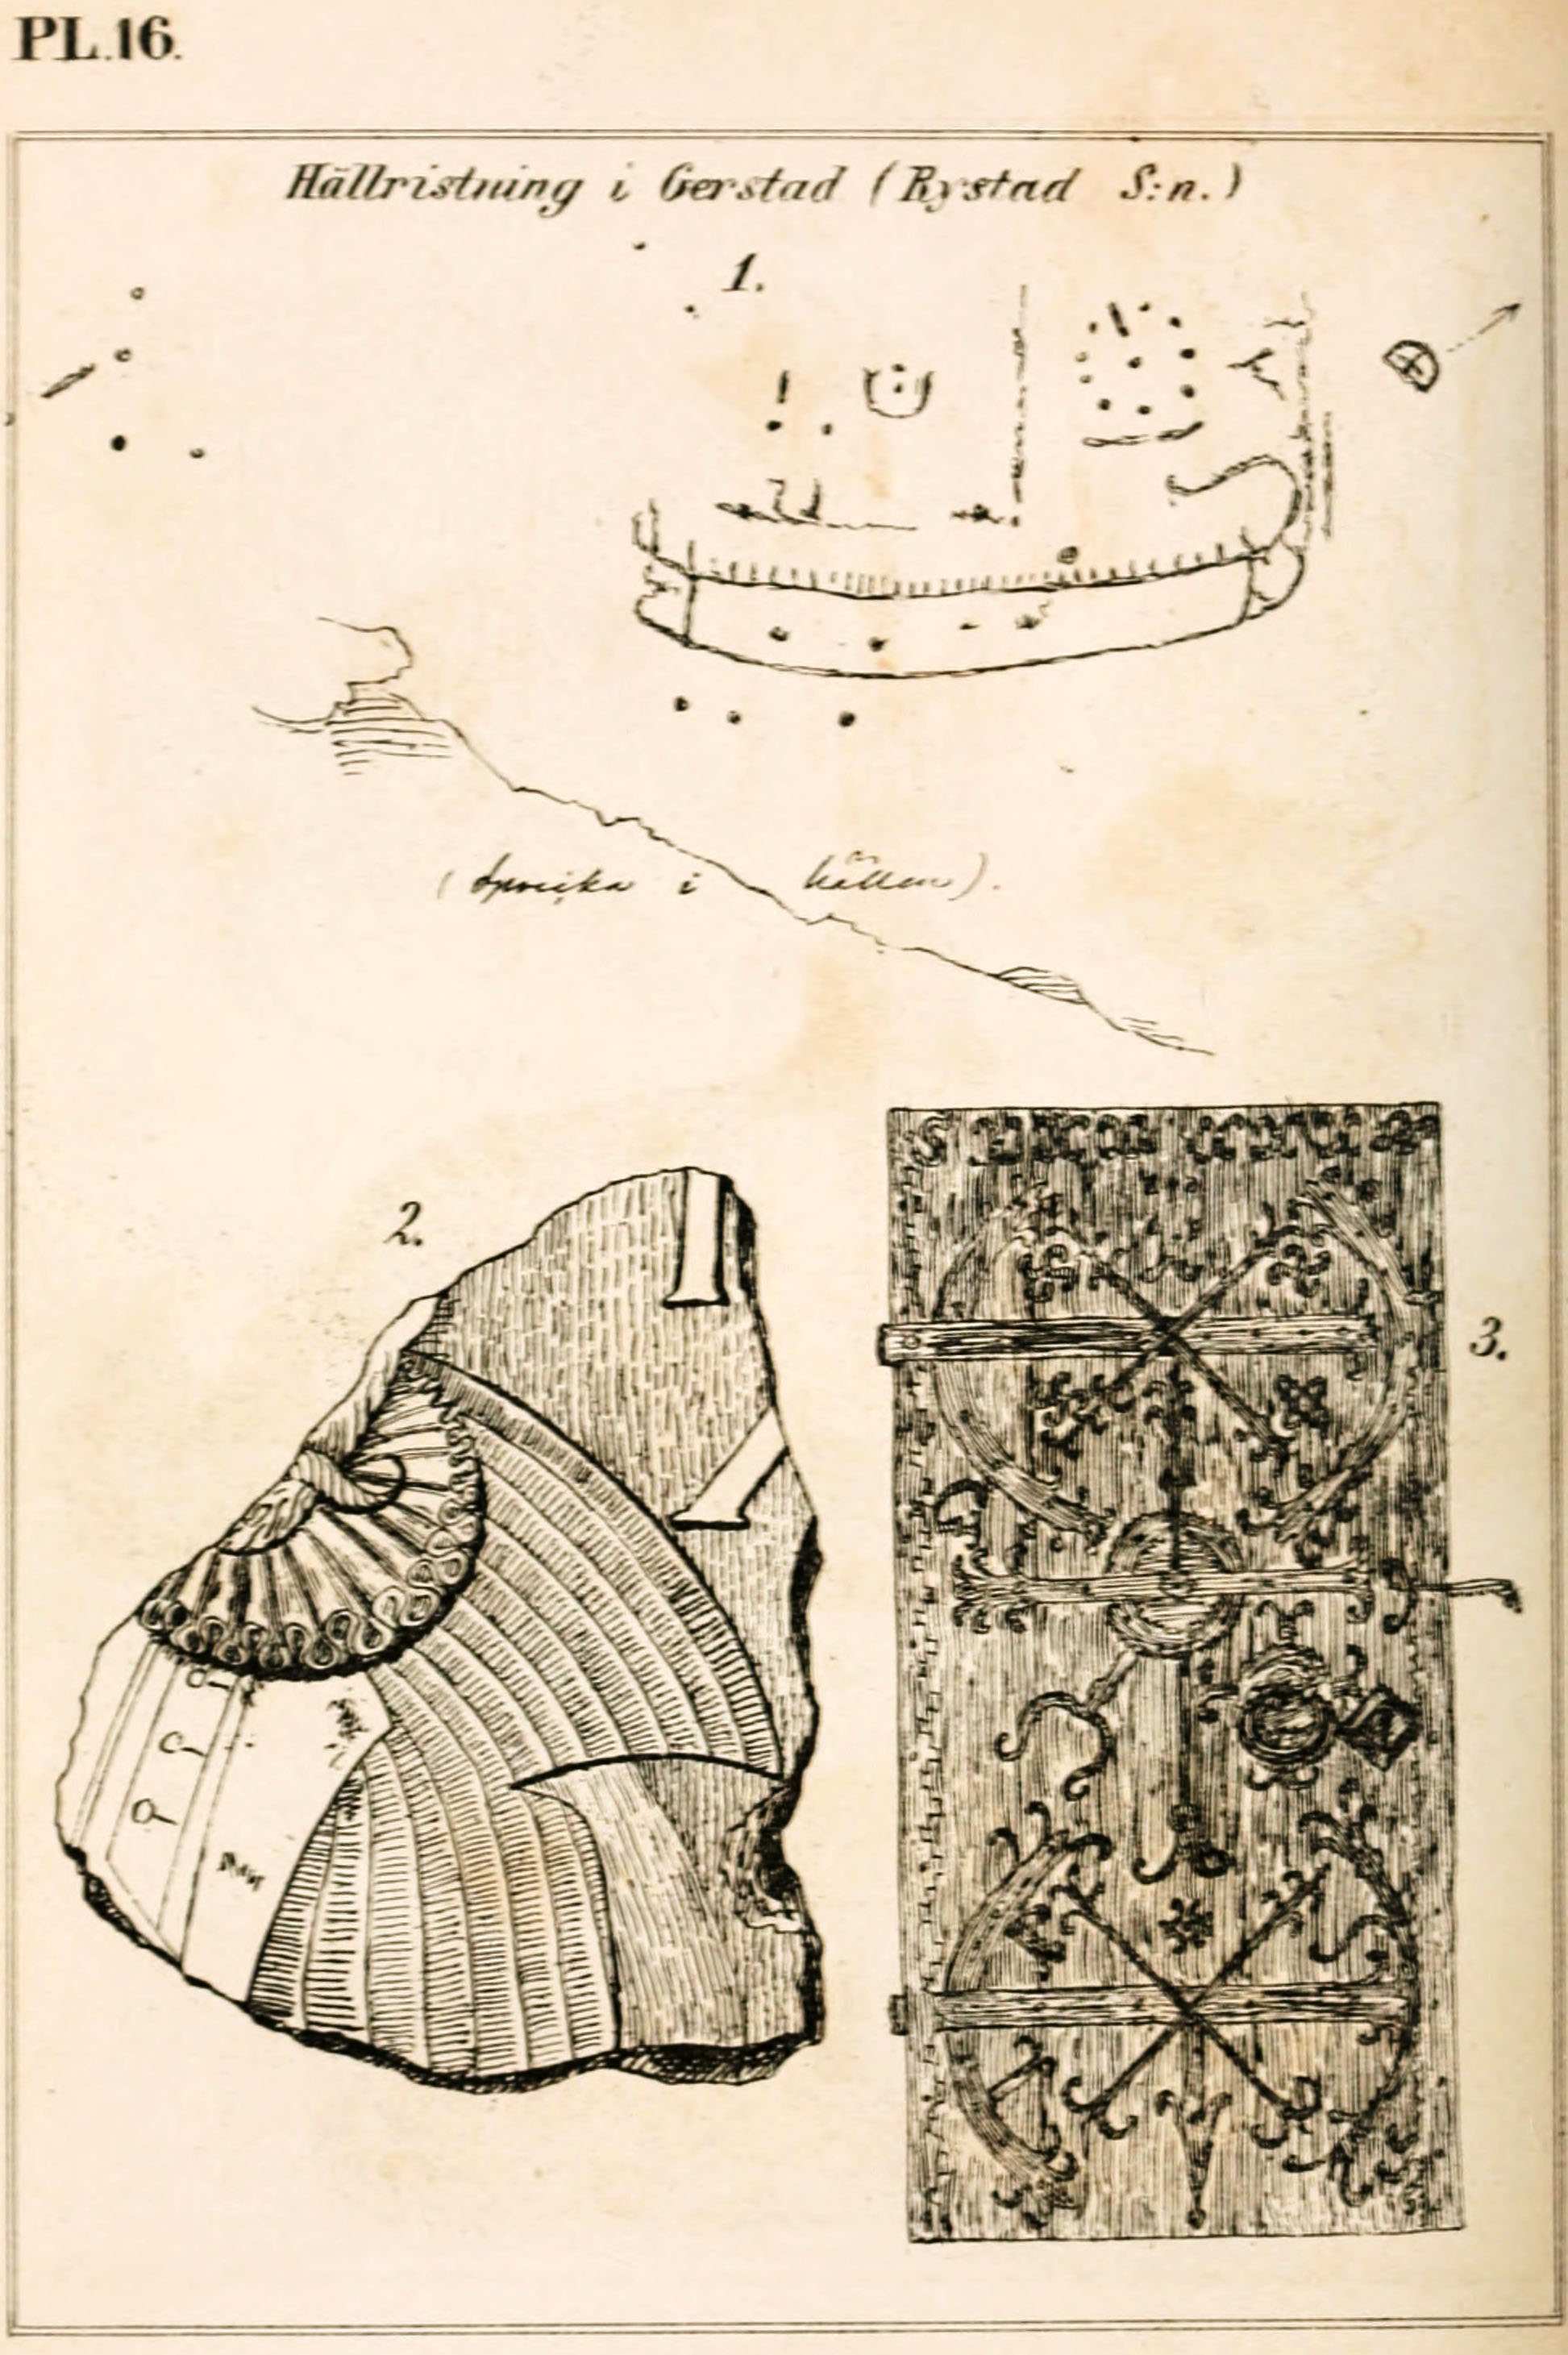 PL.16.
Hällristning i Gerstad (Rystad S:n.)
1.
(Spricka i hällen).
2.
3.